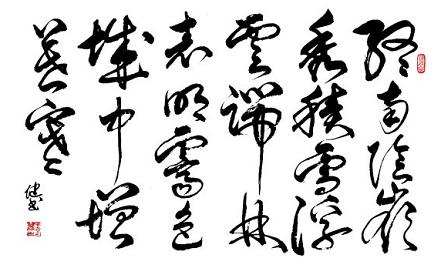 終南陰嶺
秀積雪浮
雲端林
表明霽色
城中增
暮寒